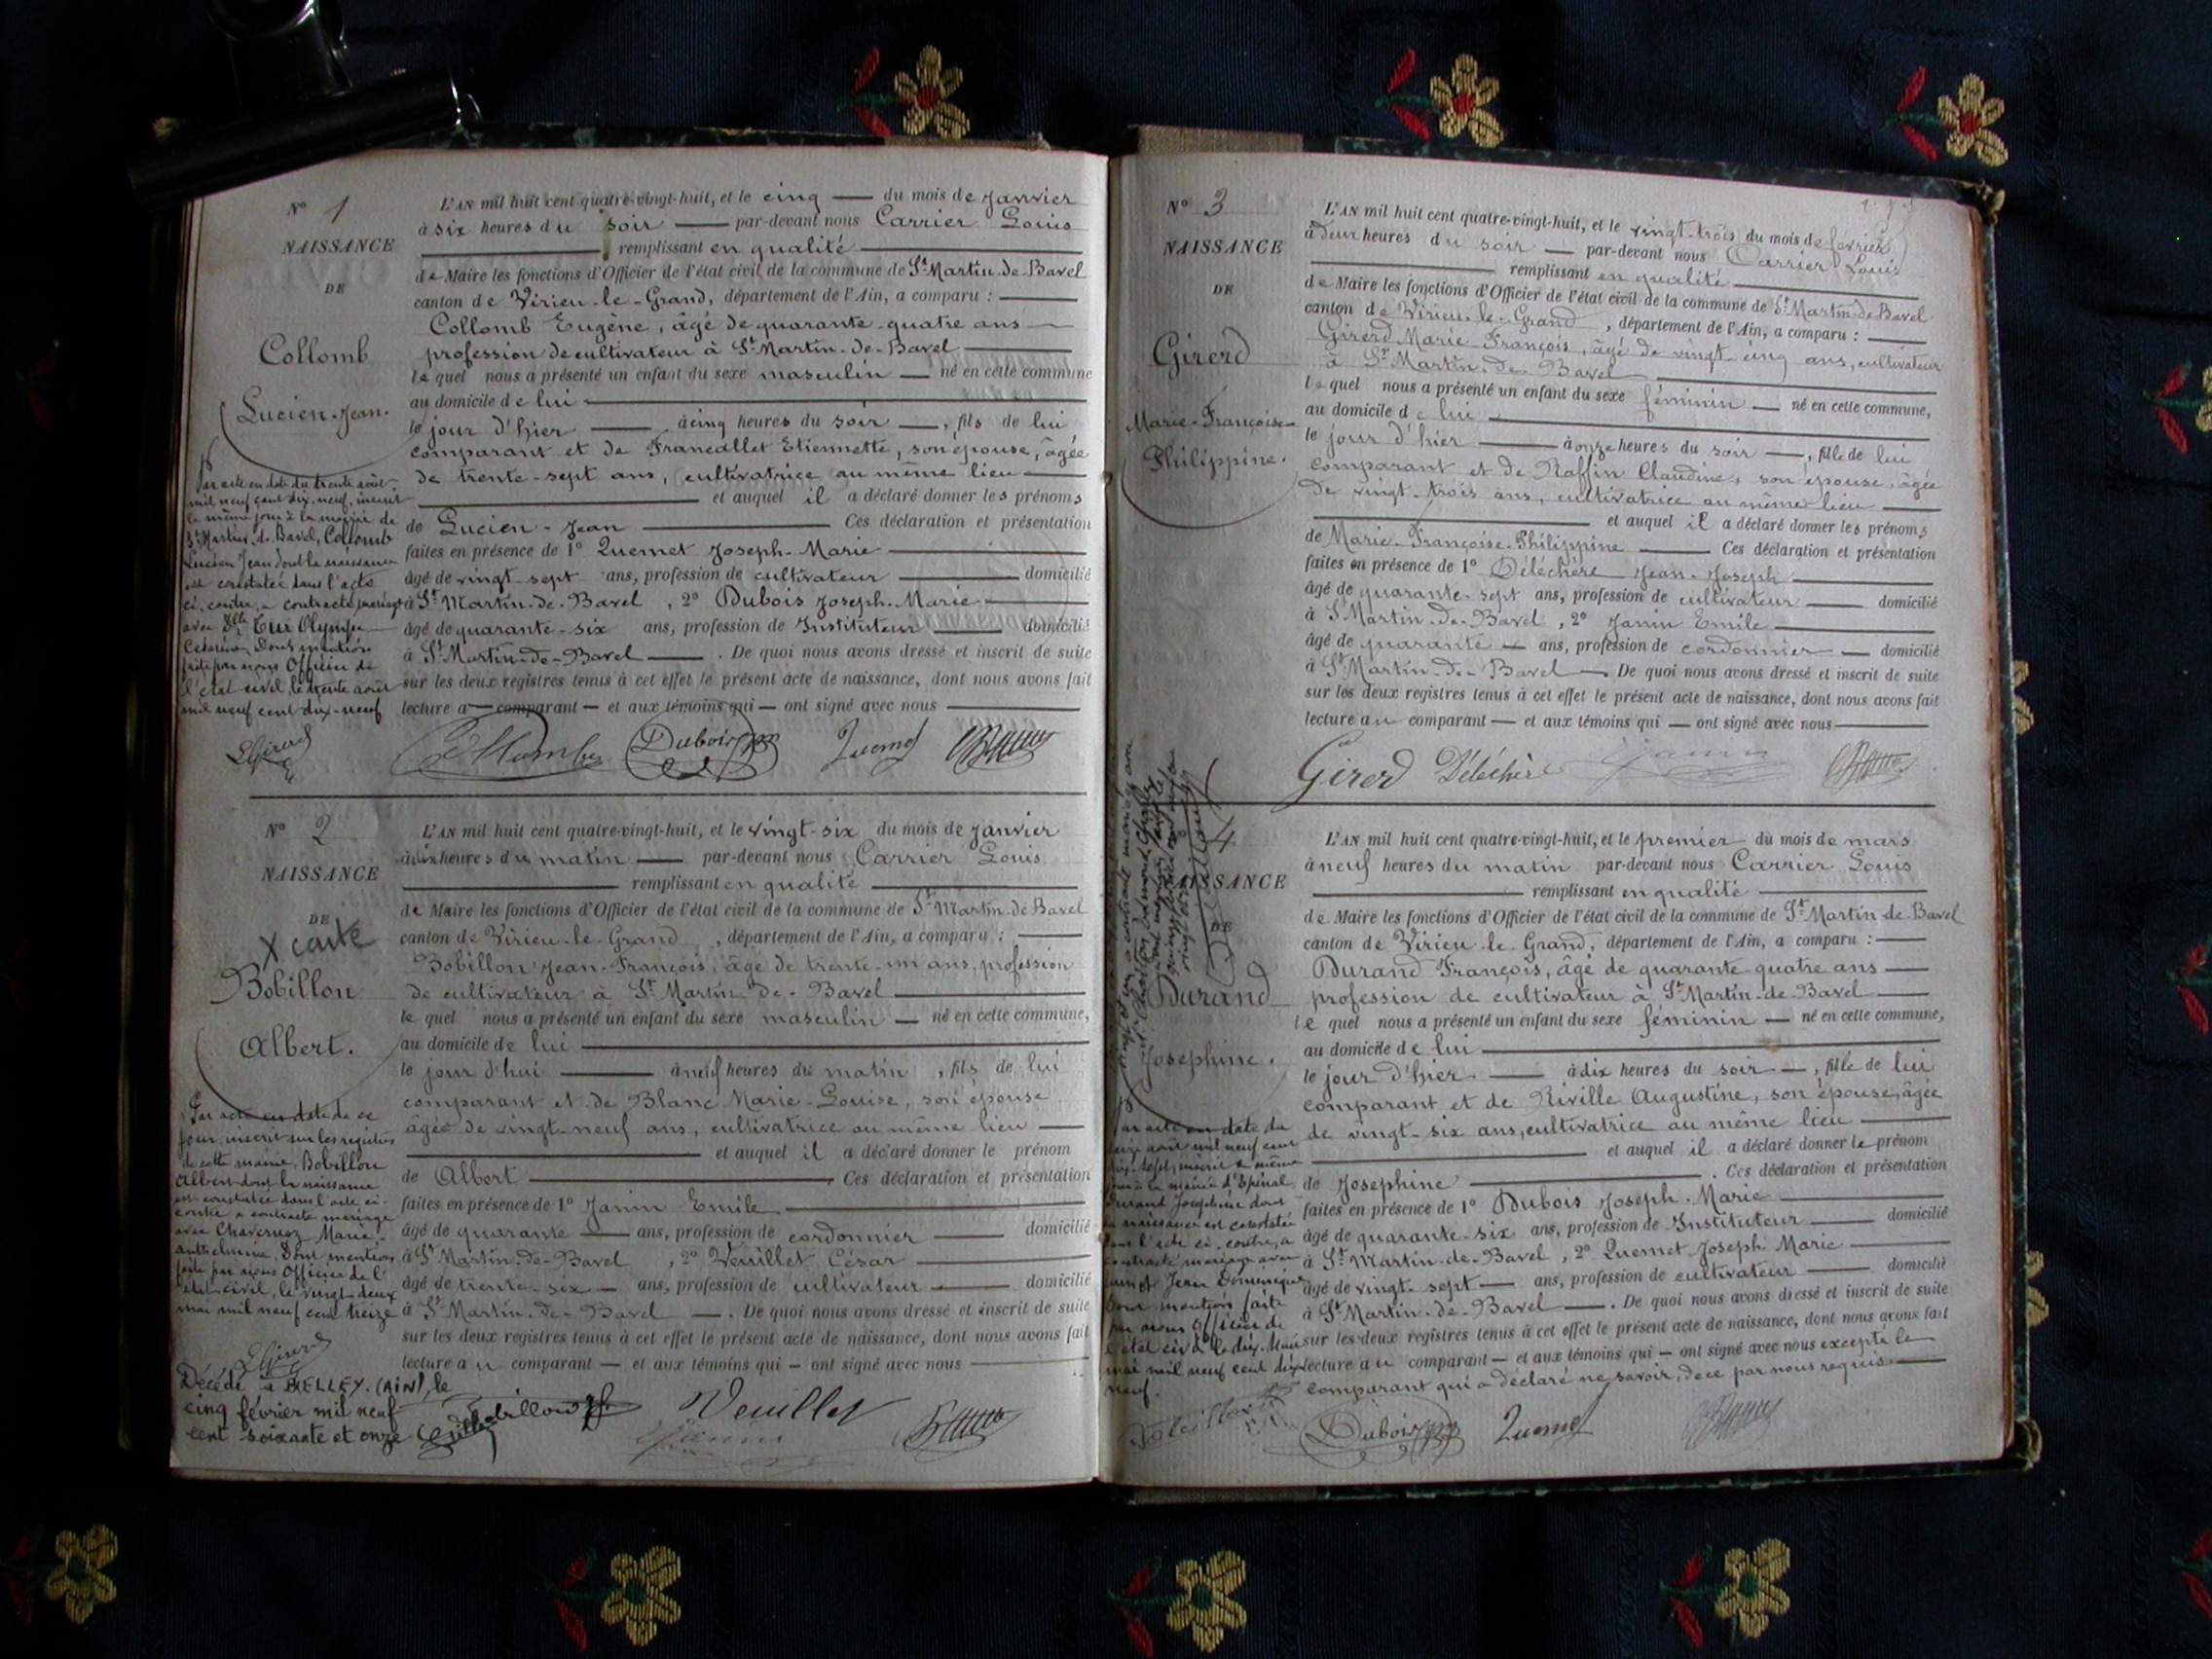 N° 1
NAISSANCE
DE
Collomb
Lucien-Jean.
Par acte en date du trente août
mil neuf cent dix-neuf, inscrit
le même jour à la mairie de
St Martin-de-Bavel, Collomb
Lucien Jean dont la naissance
est constatée dans l'acte
ci-contre, a contracté mariage
avec Dlle Olympe
Dont mention
faite par nous Officier de
l'état civil, le trente août
mil neuf cent dix-neuf
L'AN mil huit cent quatre-vingt-huit, et le cinq — du mois de Janvier
à six heures du soir — par-devant nous Carrier Louis
— remplissant en qualité —
de Maire les fonctions d'Officier de l'état civil de la commune de St Martin-de-Bavel
canton de Virieu-le-Grand, département de l'Ain, a comparu : —
Collomb Eugène, âgé de quarante-quatre ans —
profession de cultivateur à St Martin-de-Bavel —
le quel nous a présenté un enfant du sexe masculin — né en cette commune
au domicile de lui —
le jour d'hier — à cinq heures du soir —, fils de lui
comparant et de Francallet Etiennette, son épouse, âgée
de trente-sept ans, cultivatrice au même lieu —
— et auquel il a déclaré donner les prénoms
de Lucien-Jean — Ces déclaration et présentation
faites en présence de 1° Quemet Joseph-Marie —
âgé de vingt-sept ans, profession de cultivateur — domicilié
à St Martin-de-Bavel, 2° Dubois Joseph-Marie —
âgé de quarante-six ans, profession de Instituteur — domicilié
à St Martin-de-Bavel —. De quoi nous avons dressé et inscrit de suite
sur les deux registres tenus à cet effet le présent acte de naissance, dont nous avons fait
lecture a — comparant — et aux témoins qui — ont signé avec nous —
Dubois Quemet
N° 2
NAISSANCE
DE
X carte
Bobillon
Albert.
Par acte en date de ce
jour, inscrit sur les registres
de cette mairie, Bobillon
Albert dont la naissance
est constatée dans l'acte ci-
contre a contracté mariage
avec Marie-
Anthelmine. Dont mention
faite par nous Officier de l'
état civil, le vingt-deux
mai mil neuf cent treize
Décédé à BELLEY (AIN), le
cinq février mil neuf
cent soixante et onze
L'AN mil huit cent quatre-vingt-huit, et le vingt-six du mois de Janvier
à dix heures du matin — par-devant nous Carrier Louis
— remplissant en qualité —
de Maire les fonctions d'Officier de l'état civil de la commune de St Martin-de-Bavel
canton de Virieu-le-Grand, département de l'Ain, a comparu : —
Bobillon Jean-François, âgé de trente-un ans, profession
de cultivateur à St Martin-de-Bavel —
le quel nous a présenté un enfant du sexe masculin — né en cette commune,
au domicile de lui —
le jour d'hui — à neuf heures du matin, fils de lui
comparant et de Blanc Marie-Louise, son épouse
âgée de vingt-neuf ans, cultivatrice au même lieu —
— et auquel il a déclaré donner le prénom
de Albert — Ces déclaration et présentation
faites en présence de 1° Janin Emile —
âgé de quarante — ans, profession de cordonnier — domicilié
à St Martin-de-Bavel, 2° Veuillet César —
âgé de trente-six — ans, profession de cultivateur — domicilié
à St Martin-de-Bavel —. De quoi nous avons dressé et inscrit de suite
sur les deux registres tenus à cet effet le présent acte de naissance, dont nous avons fait
lecture au comparant — et aux témoins qui — ont signé avec nous —
Bobillon Veuillet
Janin
N° 3
NAISSANCE
DE
Girerd
Marie-Françoise-
Philippine.
L'AN mil huit cent quatre-vingt-huit, et le vingt-trois du mois de février
à deux heures du soir — par-devant nous Carrier Louis
— remplissant en qualité —
de Maire les fonctions d'Officier de l'état civil de la commune de St Martin-de-Bavel
canton de Virieu-le-Grand, département de l'Ain, a comparu : —
Girerd Marie-François, âgé de vingt-cinq ans, cultivateur
à St Martin-de-Bavel —
le quel nous a présenté un enfant du sexe féminin — né en cette commune,
au domicile de lui —
le jour d'hier — à onze heures du soir —, fille de lui
comparant et de Raffin Claudine, son épouse, âgée
de vingt-trois ans, cultivatrice au même lieu —
— et auquel il a déclaré donner les prénoms
de Marie-Françoise-Philippine — Ces déclaration et présentation
faites en présence de 1° Déléchère Jean-Joseph —
âgé de quarante-sept ans, profession de cultivateur — domicilié
à St Martin-de-Bavel, 2° Janin Emile —
âgé de quarante — ans, profession de cordonnier — domicilié
à St Martin-de-Bavel —. De quoi nous avons dressé et inscrit de suite
sur les deux registres tenus à cet effet le présent acte de naissance, dont nous avons fait
lecture au comparant — et aux témoins qui — ont signé avec nous —
Girerd Déléchère Janin
4
NAISSANCE
DE
Durand
Josephine.
Par acte en date du
seize août mil neuf cent
dix-sept, inscrit le même
jour à la mairie d'Epinal
Durand Joséphine dont
la naissance est constatée
dans l'acte ci-contre, a
contracté mariage avec
Jean Dominique
Dont mention faite
par nous Officier de
l'état civil le dix-huit
mai mil neuf cent dix-
neuf.
L'AN mil huit cent quatre-vingt-huit, et le premier du mois de mars
à neuf heures du matin par-devant nous Carrier Louis
— remplissant en qualité —
de Maire les fonctions d'Officier de l'état civil de la commune de St Martin-de-Bavel
canton de Virieu-le-Grand, département de l'Ain, a comparu : —
Durand François, âgé de quarante-quatre ans —
profession de cultivateur à St Martin-de-Bavel —
le quel nous a présenté un enfant du sexe féminin — né en cette commune,
au domicile de lui —
le jour d'hier — à dix heures du soir —, fille de lui
comparant et de Riville Augustine, son épouse, âgée
de vingt-six ans, cultivatrice au même lieu —
— et auquel il a déclaré donner le prénom
de Josephine —. Ces déclaration et présentation
faites en présence de 1° Dubois Joseph-Marie —
âgé de quarante-six ans, profession de Instituteur — domicilié
à St Martin-de-Bavel, 2° Quemet Joseph Marie —
âgé de vingt-sept — ans, profession de cultivateur — domicilié
à St Martin-de-Bavel —. De quoi nous avons dressé et inscrit de suite
sur les deux registres tenus à cet effet le présent acte de naissance, dont nous avons fait
lecture au comparant — et aux témoins qui — ont signé avec nous excepté le
comparant qui a déclaré ne savoir, de ce par nous requis —
Dubois Quemet